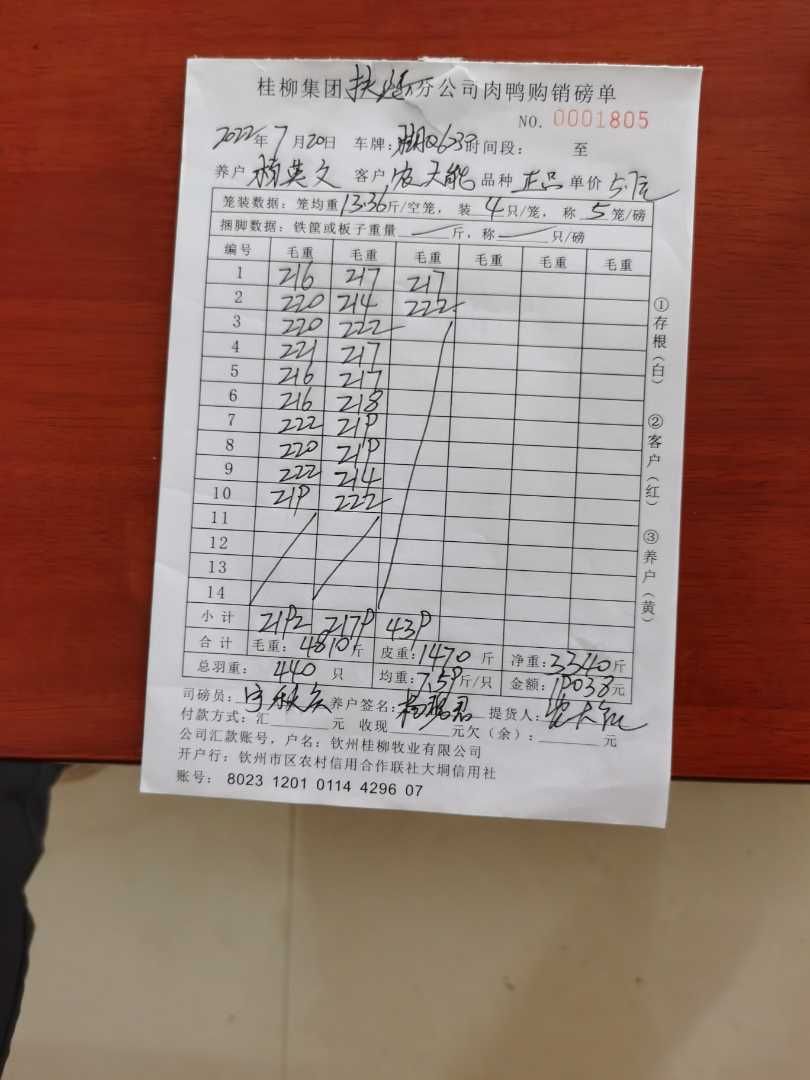 桂柳集团扶绥分公司肉鸭购销磅单
NO. 0001805
2022年7月20日 车牌: 时间段: 至
养户 杨英文 客户 农天能 品种 正品 单价 5.7元
笼装数据: 笼均重13.36斤/空笼, 装 4 只/笼, 称 5 笼/磅
捆脚数据: 铁筐或板子重量 斤, 称 只/磅
编号 毛重 毛重 毛重 毛重 毛重 毛重
1 216 217 217
2 220 214 222
3 220 222
4 221 217
5 216 217
6 216 218
7 222 219
8 220 219
9 222 214
10 219 222
11
12
13
14
小计 2192 2179 439
合计 毛重: 4810斤 皮重: 1470斤 净重: 3340斤
总羽重: 440 只 均重: 7.59斤/只 金额: 19038元
司磅员: 养户签名: 提货人: 农天能
付款方式: 汇 元 收现 元欠(余): 元
公司汇款账号, 户名: 钦州桂柳牧业有限公司
开户行: 钦州市区农村信用合作联社大垌信用社
账号: 8023 1201 0114 4296 07
①存根(白) ②客户(红) ③养户(黄)